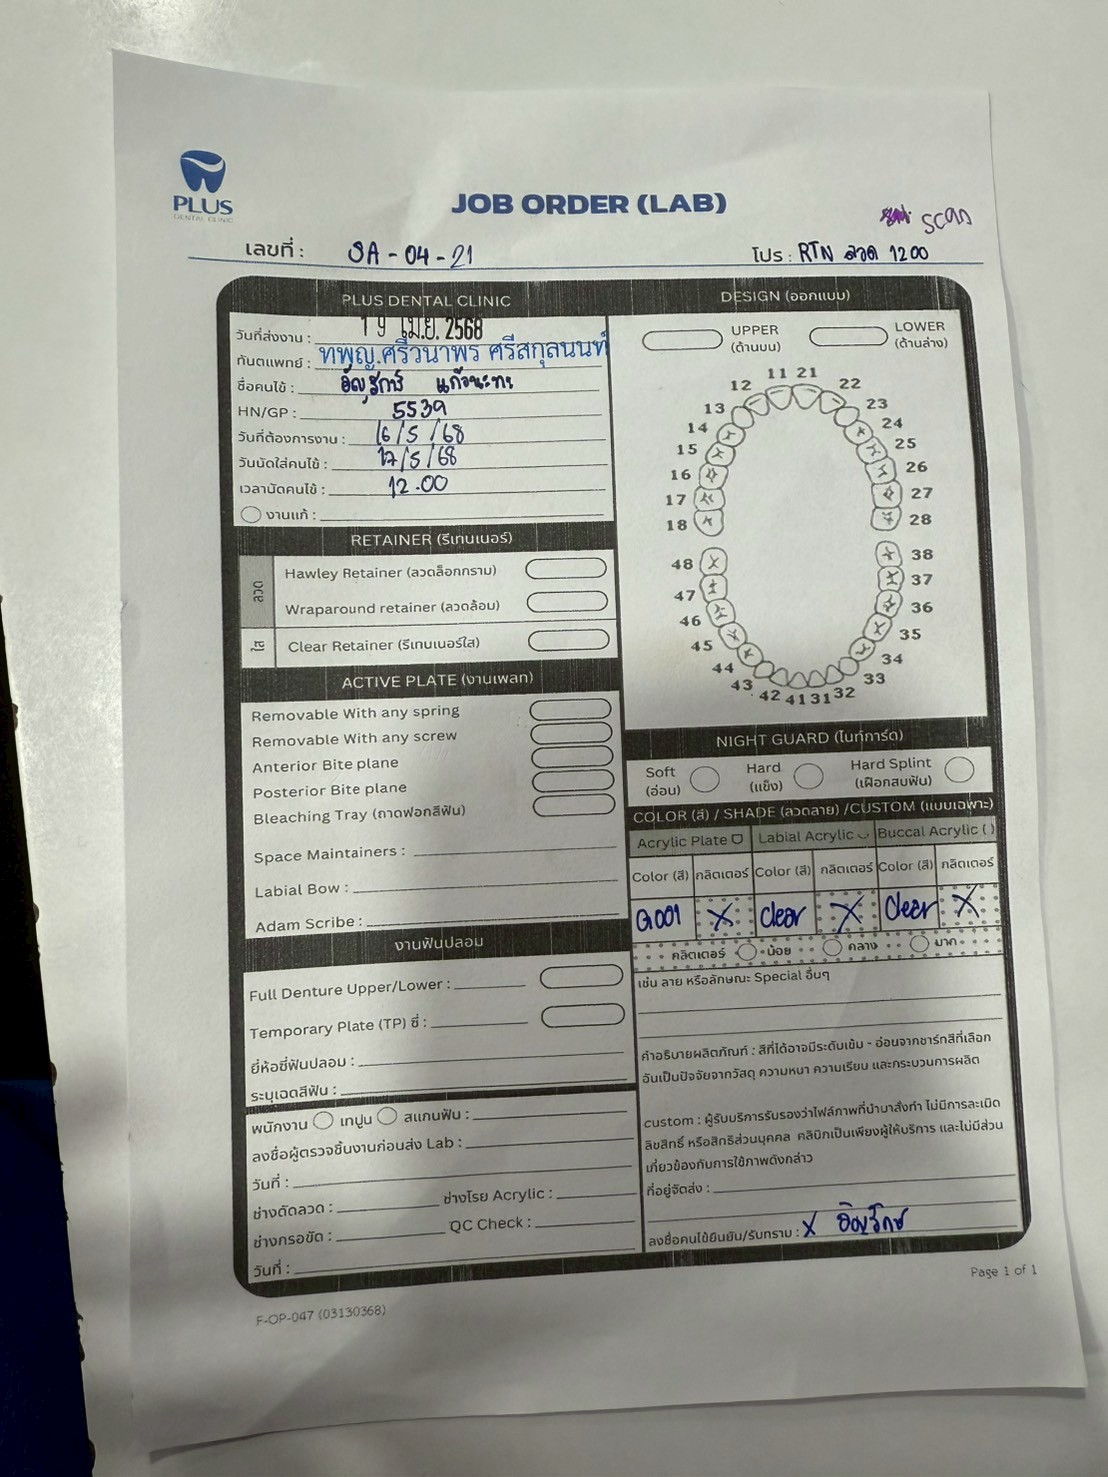 PLUS
DENTAL CLINIC
JOB ORDER (LAB)
scan
เลขที่ : SA - 04 - 21
โปร : RTN ลวด 1200
PLUS DENTAL CLINIC
วันที่ส่งงาน : 19 เม.ย. 2568
ทันตแพทย์ : ทพญ.ศรีวนาพร ศรีสกุลนนท์
ชื่อคนไข้ :
HN/GP : 5539
วันที่ต้องการงาน : 16/5/68
วันนัดใส่คนไข้ : 17/5/68
เวลานัดคนไข้ : 12.00
งานแก้ :
RETAINER (รีเทนเนอร์)
ลวด
Hawley Retainer (ลวดล็อกกราม)
Wraparound retainer (ลวดล้อม)
ใส
Clear Retainer (รีเทนเนอร์ใส)
ACTIVE PLATE (งานเพลท)
Removable With any spring
Removable With any screw
Anterior Bite plane
Posterior Bite plane
Bleaching Tray (ถาดฟอกสีฟัน)
Space Maintainers :
Labial Bow :
Adam Scribe :
งานฟันปลอม
Full Denture Upper/Lower :
Temporary Plate (TP) ซี่ :
ยี่ห้อซี่ฟันปลอม :
ระบุเฉดสีฟัน :
พนักงาน เทปูน สแกนฟัน :
ลงชื่อผู้ตรวจชิ้นงานก่อนส่ง Lab :
วันที่ :
ช่างดัดลวด : ช่างโรย Acrylic :
ช่างกรอขัด : QC Check :
วันที่ :
DESIGN (ออกแบบ)
UPPER
(ด้านบน)
LOWER
(ด้านล่าง)
11 21
12 22
13 23
14 24
15 25
16 26
17 27
18 28
48 38
47 37
46 36
45 35
44 34
43 33
42 41 31 32
NIGHT GUARD (ไนท์การ์ด)
Soft
(อ่อน)
Hard
(แข็ง)
Hard Splint
(เฝือกสบฟัน)
COLOR (สี) / SHADE (ลวดลาย) /CUSTOM (แบบเฉพาะ)
Acrylic Plate Labial Acrylic Buccal Acrylic ( )
Color (สี) กลิตเตอร์ Color (สี) กลิตเตอร์ Color (สี) กลิตเตอร์
G001 X Clear X Clear X
กลิตเตอร์ น้อย กลาง มาก
เช่น ลาย หรือลักษณะ Special อื่นๆ
คำอธิบายผลิตภัณฑ์ : สีที่ได้อาจมีระดับเข้ม - อ่อนจากชาร์ทสีที่เลือก
อันเป็นปัจจัยจากวัสดุ ความหนา ความเรียบ และกระบวนการผลิต
custom : ผู้รับบริการรับรองว่าไฟล์ภาพที่นำมาสั่งทำ ไม่มีการละเมิด
ลิขสิทธิ์ หรือสิทธิส่วนบุคคล คลินิกเป็นเพียงผู้ให้บริการ และไม่มีส่วน
เกี่ยวข้องกับการใช้ภาพดังกล่าว
ที่อยู่จัดส่ง :
ลงชื่อคนไข้ยืนยัน/รับทราบ : X
Page 1 of 1
F-OP-047 (03130368)